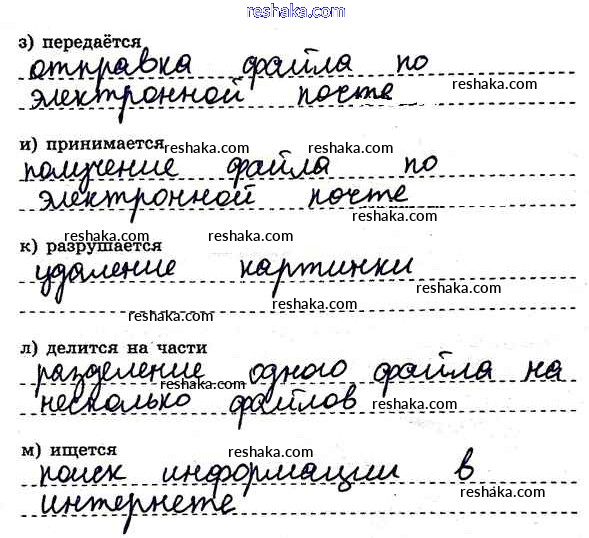 reshaka.com
reshaka.com
з) передаётся
отправка файла по
reshaka.com
электронной почте
и) принимается
reshaka.com reshaka.com
получение файла по
электронной почте
reshaka.com
reshaka.com reshaka.com
к) разрушается
удаление картинки
reshaka.com
reshaka.com
л) делится на части
разделение одного файла на
reshaka.com
несколько файлов reshaka.com
м) ищется reshaka.com
поиск информации в
интернете reshaka.com